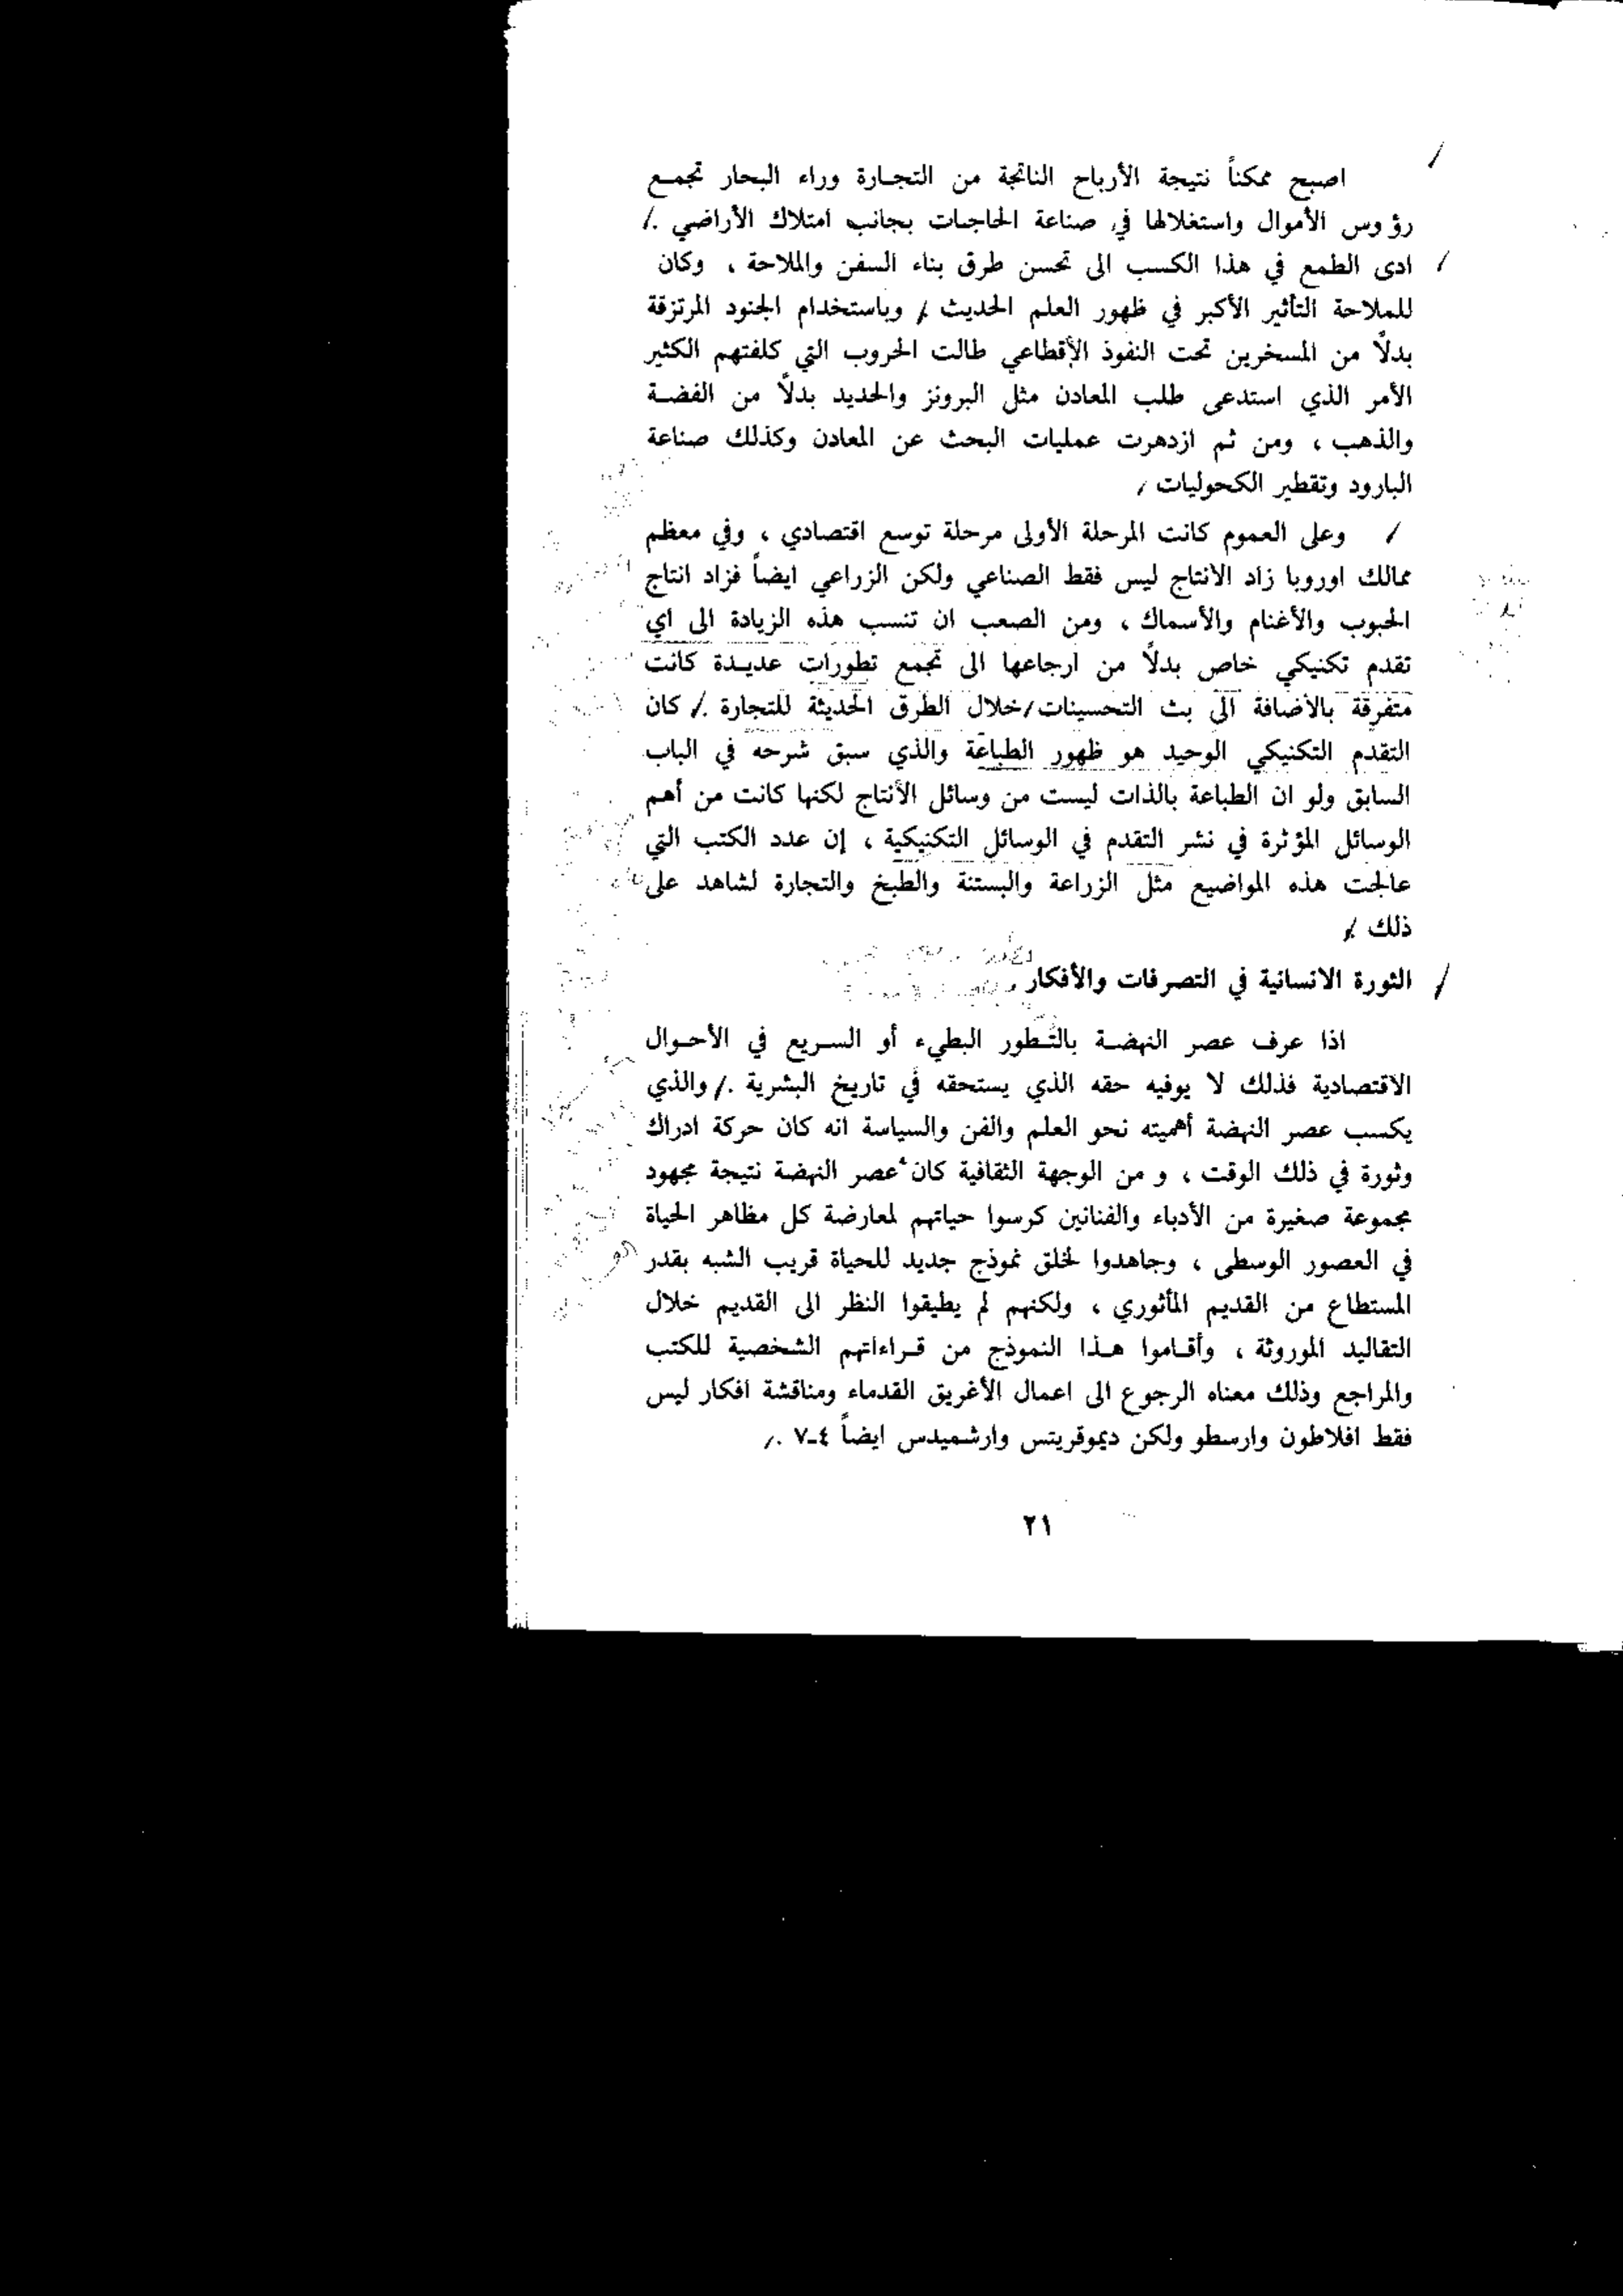 اصبح ممكناً نتيجة الأرباح الناتجة من التجـارة وراء البحار تجمـع
رؤوس الأموال واستغلالها في صناعة الحاجيات بجانب امتلاك الأراضي .
ادى الطمع في هذا الكسب الى تحسن طرق بناء السفن والملاحة ، وكان
للملاحة التأثير الأكبر في ظهور العلم الحديث / وباستخدام الجنود المرتزقة
بدلاً من المسخرين تحت النفوذ الإقطاعي طالت الحروب التي كلفتهم الكثير
الأمر الذي استدعى طلب المعادن مثل البرونز والحديد بدلاً من الفضـة
والذهب ، ومن ثم ازدهرت عمليات البحث عن المعادن وكذلك صناعة
البارود وتقطير الكحوليات /
/ وعلى العموم كانت المرحلة الأولى مرحلة توسع اقتصادي ، وفي معظم
ممالك اوروبا زاد الانتاج ليس فقط الصناعي ولكن الزراعي ايضاً فزاد انتاج
الحبوب والأغنام والأسماك ، ومن الصعب ان تنسب هذه الزيادة الى اي
تقدم تكنيكي خاص بدلاً من ارجاعها الى تجمع تطورات عديـدة كانت
متفرقة بالأضافة الى بث التحسينات/خلال الطرق الحديثة للتجارة ./ كان
التقدم التكنيكي الوحيد هو ظهور الطباعة والذي سبق شرحه في الباب
السابق ولو ان الطباعة بالذات ليست من وسائل الأنتاج لكنها كانت من أهم
الوسائل المؤثرة في نشر التقدم في الوسائل التكنيكية ، إن عدد الكتب التي
عالجت هذه المواضيع مثل الزراعة والبستنة والطبخ والتجارة لشاهد على
ذلك /
/ الثورة الانسانية في التصرفات والأفكار
اذا عرف عصر النهضـة بالتـطور البطيء أو السـريع في الأحـوال
الاقتصادية فذلك لا يوفيه حقه الذي يستحقه في تاريخ البشرية ./ والذي
يكسب عصر النهضة أهميته نحو العلم والفن والسياسة انه كان حركة ادراك
وثورة في ذلك الوقت ، و من الوجهة الثقافية كان عصر النهضة نتيجة مجهود
مجموعة صغيرة من الأدباء والفنانين كرسوا حياتهم لمعارضة كل مظاهر الحياة
في العصور الوسطى ، وجاهدوا لخلق نموذج جديد للحياة قريب الشبه بقدر
المستطاع من القديم المأثوري ، ولكنهم لم يطيقوا النظر الى القديم خلال
التقاليد الموروثة ، وأقـاموا هـذا النموذج من قـراءاتهم الشخصية للكتب
والمراجع وذلك معناه الرجوع الى اعمال الأغريق القدماء ومناقشة افكار ليس
فقط افلاطون وارسطو ولكن ديموقريتس وارشميدس ايضاً ٤ـ٧ ./
٢١